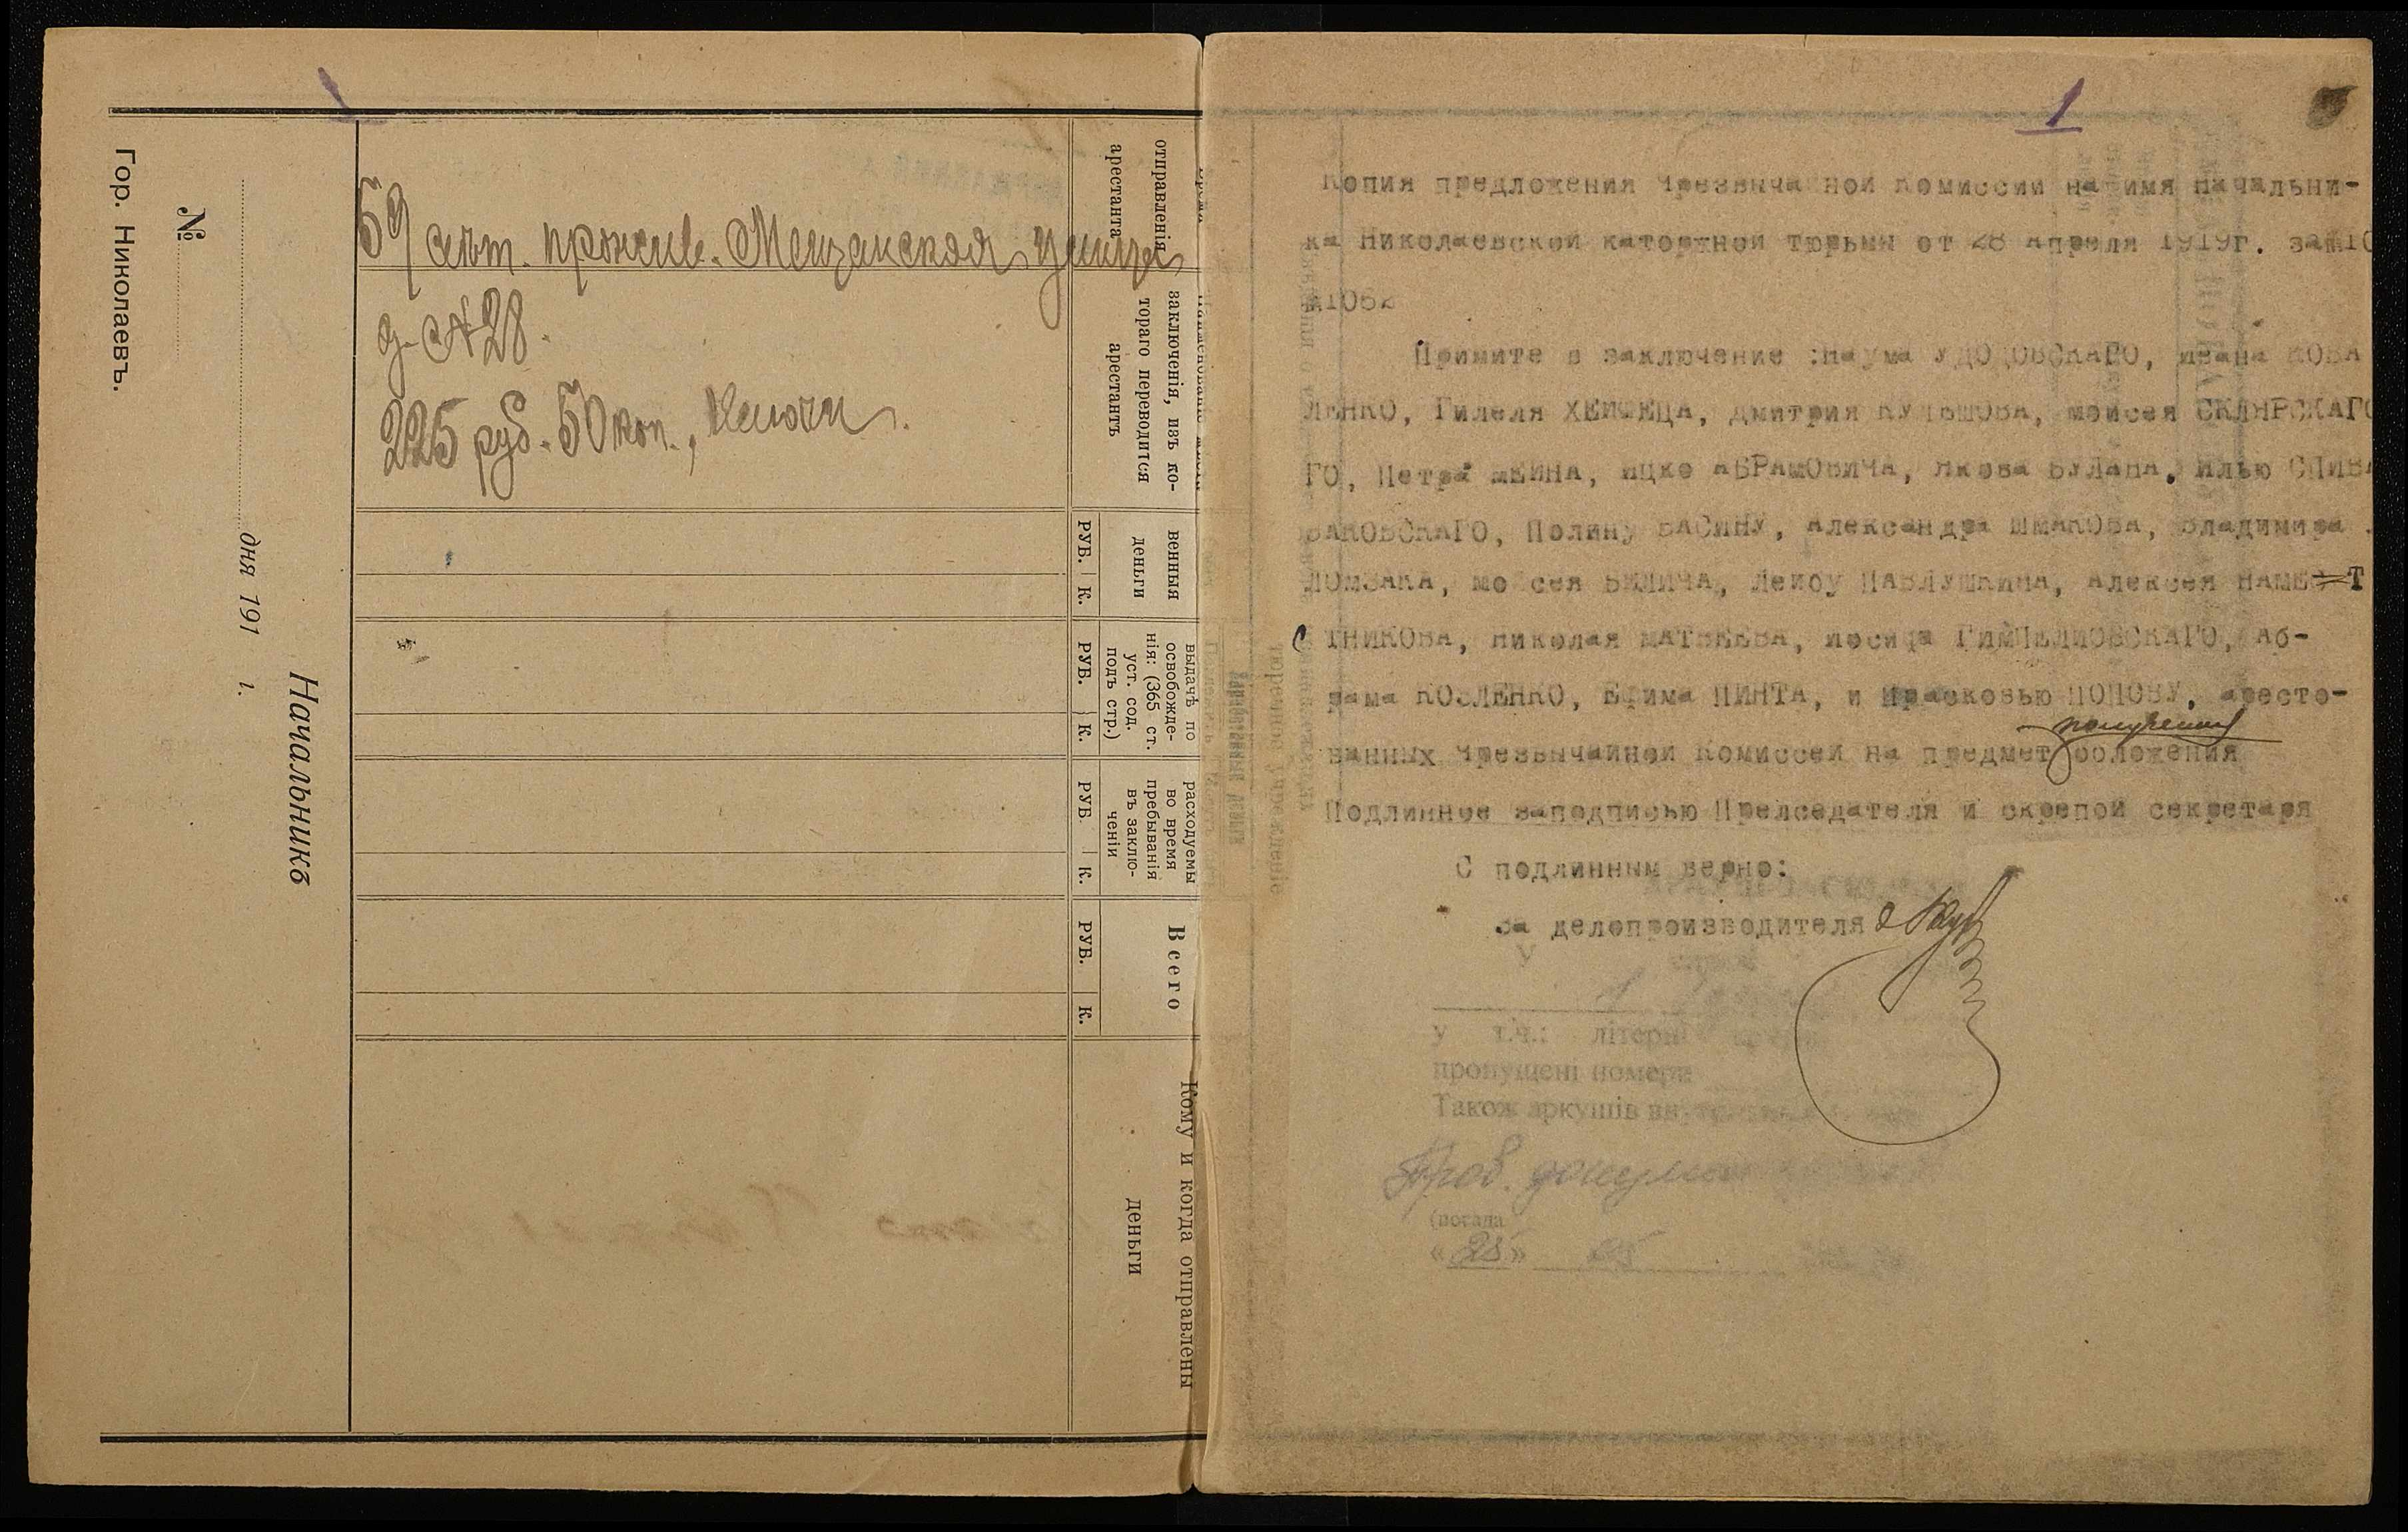 59 лѣт. прожив. Мещанская улица
д. №28.
225 руб. 50 коп., ключи.
отправленія
арестанта
заключенія, изъ ко-
тораго переводится
арестантъ
венныя
деньги
РУБ. К.
выдачѣ по
освобожде-
нія: (365 ст.
уст. сод.
подъ стр.)
РУБ. К.
расходуемы
во время
пребыванія
въ заклю-
ченіи
РУБ. К.
Всего
РУБ. К.
Кому и когда отправлены
деньги
Начальникъ
дня 191 г.
№
Гор. Николаевъ.
1
Копия предложения Чрезвычайной Комиссии на имя Начальни-
ка Николаевской каторжной тюрьмы от 28 Апреля 1919г. за
№1062
Примите в заключение :Наума УДОДОВСКАГО, Ивана КОВА
ЛЕНКО, Гилеля ХЕЙФЕЦА, Дмитрия КУЛЬШОВА, Моисея СКЛЯРСКАГО
ГО, Петра ШЕИНА, Ицко АБРАМОВИЧА, Якова БУЛАНА, Илью СПИВА
ВАКОВСКАГО, Полину ВАСИНУ, Александра ШМАКОВА, Владимира
ЛОМЗАКА, Моисея БИЛИЧА, Лейбу ПАВЛУШКИНА, Алексея НАМЕСТ
С ТНИКОВА, Николая МАТВЕЕВА, Иосифа ГИМПЕЛИОВСКАГО, Аб-
рама КОЗЛЕНКО, Ефима ПИНТА, и Прасковью ПОПОВУ, аресто-
получения
ванных Чрезвычайной Комиссей на предмет ооложения
Подлинное заподписью Прелседателя и скрепой секретаря
С подлинным верно:
За делопроизводителя
у т.ч.: літерні
пропущені номери
Також аркушів
Пров.
(посада
«28»